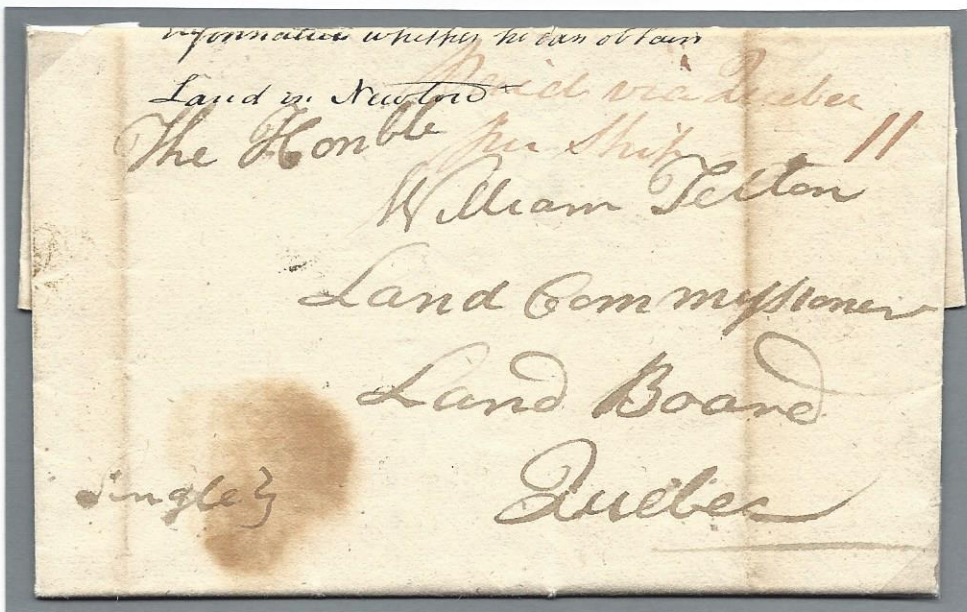 information whether he can obtain
Land in Newton
paid via Quebec
per Ship 11
The Honble
William Felton
Land Commissioner
Land Board
Quebec
Single}